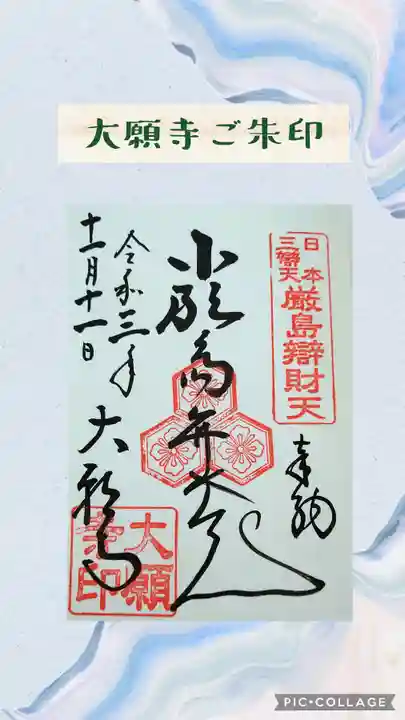 大願寺ご朱印
日本
三辨天
厳島辯財天
奉納
大願寺
令和三年
十一月十一日
大願
寺印
PIC•COLLAGE